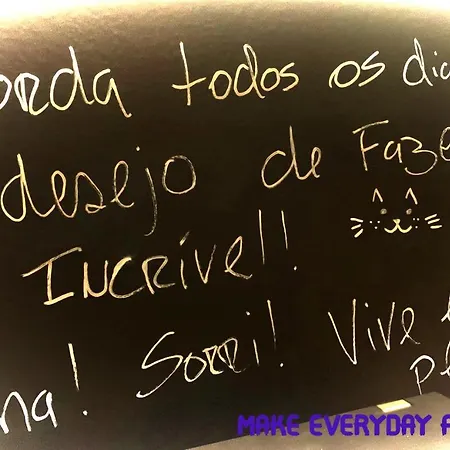 orda todos os dia
desejo de Faze
INCRÍVEl!!
na! Sorri! Vive
MAKE EVERYDAY A